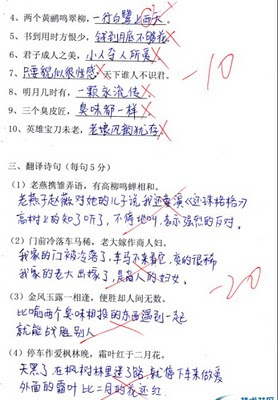 4、两个黄鹂鸣翠柳，一行白鹭上西天
5、书到用时方恨少，钱到月底不够花
6、君子成人之美，小人夺人所爱
7、只要貌似很性感 天下谁人不识君。
8、明月几时有，一颗永流传
9、三个臭皮匠，臭味都一样
10、英雄宝刀未老，老娘风韵犹存
-10
三、翻译诗句（每句5分）
（1）老燕携雏弄语，有高柳鸣蝉相和。
老燕子赵薇对她的儿子说,我还要演《还珠格格》
高树上的知了听了，不停地叫，表示强烈的反对。
（2）门前冷落车马稀，老大嫁作商人妇。
我家的门被冷落了，车马不来看它，真的很稀
我家的老大出嫁了，是商人的妇女。
-20
（3）金风玉露一相逢，便胜却人间无数。
比喻两个臭味相投的东西遇到一起
就能战胜别人
（4）停车作爱枫林晚，霜叶红于二月花。
天黑了，在枫树林里迷了路，就停下来做爱
外面的霜叶比二月的花还红